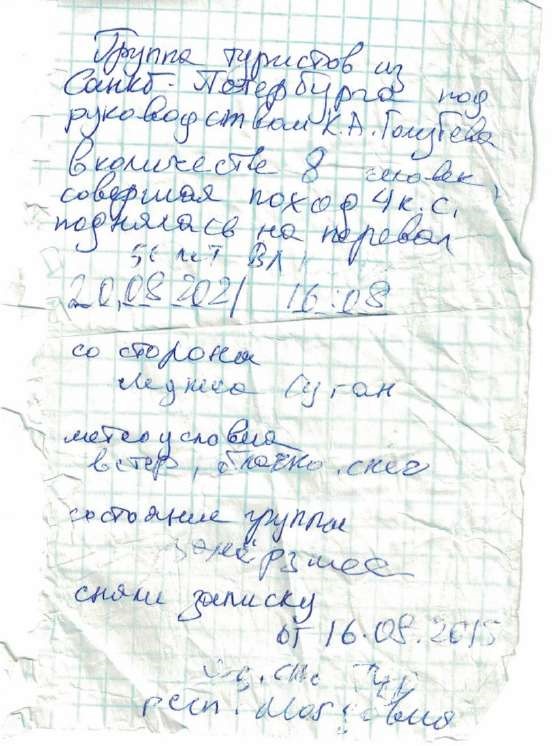 Группа туристов из
Санкт-Петербурга под
руководством К.А. Голубева
в количестве 8 человек,
совершая поход 4 к.с.
поднялась на перевал
50 лет ВЛ
20.08.2021 16:08
со стороны
ледника Суган
метеоусловия
ветер, облачно, снег
состояние группы
замёрзшее
сняли записку
от 16.08.2015
респ. Молдовия